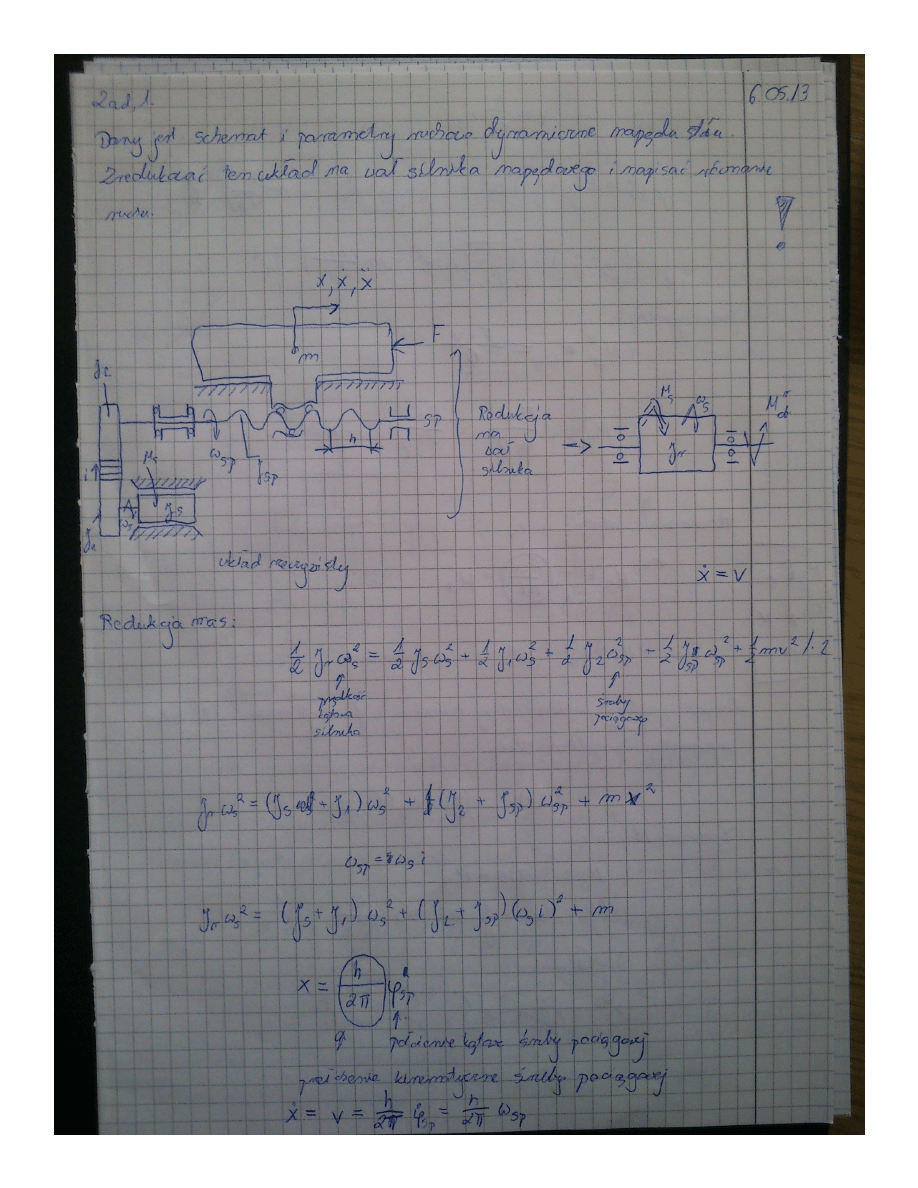 Zad.1.
6.05.13
Dany jest schemat i parametry ruchowo dynamiczne napędu stołu.
Zredukować ten układ na wał silnika napędowego i napisać równanie
ruchu.
!
x, ẋ, ẍ
F
m
J₂
SP
h
ω_SP
J_SP
i
M_s
J_s
ω_s
J₁
Redukcja
na
wał
silnika
M_s
ω_s
J_r
układ rzeczywisty
ẋ = v
Redukcja mas:
½ J_r ω_s² = ½ J_s ω_s² + ½ J₁ ω_s² + ½ J₂ ω_SP² + ½ J_SP ω_SP² + ½ mv² /· 2
prędkość
kątowa
silnika
śruby
pociągowej
J_r ω_s² = (J_s + J₁) ω_s² + (J₂ + J_SP) ω_SP² + m v²
ω_SP = ω_s i
J_r ω_s² = (J_s + J₁) ω_s² + (J₂ + J_SP)(ω_s i)² + m
x = h/2π φ_SP
położenie kątowe śruby pociągowej
przełożenie kinematyczne śruby pociągowej
ẋ = v = h/2π φ̇_SP = h/2π ω_SP